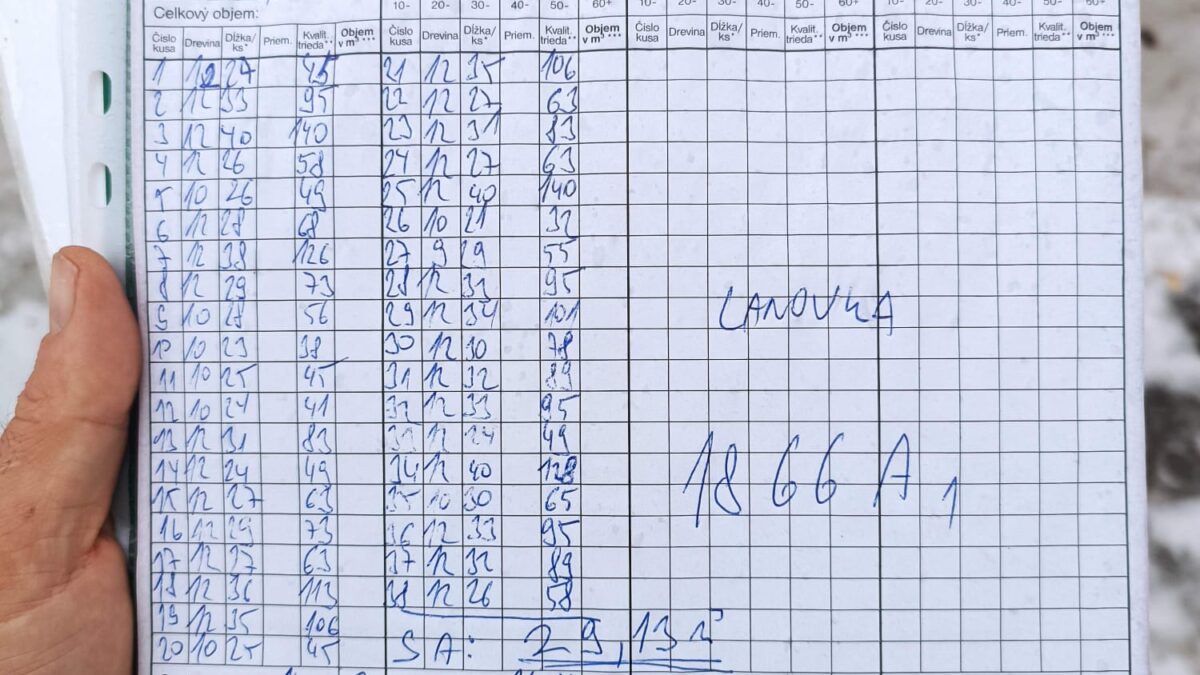 10- 20- 30- 40- 50- 60+ 10- 20- 30- 40- 50- 60+ 10- 20- 30- 40- 50- 60+
Celkový objem:
Číslo kusa Drevina Dĺžka/ks* Priem. Kvalit. trieda** Objem v m³*** Číslo kusa Drevina Dĺžka/ks* Priem. Kvalit. trieda** Objem v m³*** Číslo kusa Drevina Dĺžka/ks* Priem. Kvalit. trieda** Objem v m³*** Číslo kusa Drevina Dĺžka/ks* Priem. Kvalit. trieda** Objem v m³***
1 12 27 45 21 12 35 106
2 12 33 95 22 12 27 63
3 12 40 140 23 12 31 83
4 12 26 58 24 12 27 63
5 10 26 49 25 12 40 140
6 12 28 68 26 10 21 32
7 12 38 126 27 9 29 55
8 12 29 73 28 12 33 95
9 10 28 56 29 12 34 101
LANOVKA
10 10 23 38 30 12 30 78
11 10 25 45 31 12 32 89
12 10 24 41 32 12 33 95
13 12 31 83 33 12 24 49
14 12 24 49 34 12 40 128
1866 A1
15 12 27 63 35 10 30 65
16 12 29 73 36 12 33 95
17 12 27 63 37 12 32 89
18 12 36 113 38 12 26 58
19 12 35 106
20 10 25 45 S A: 29,13 m³